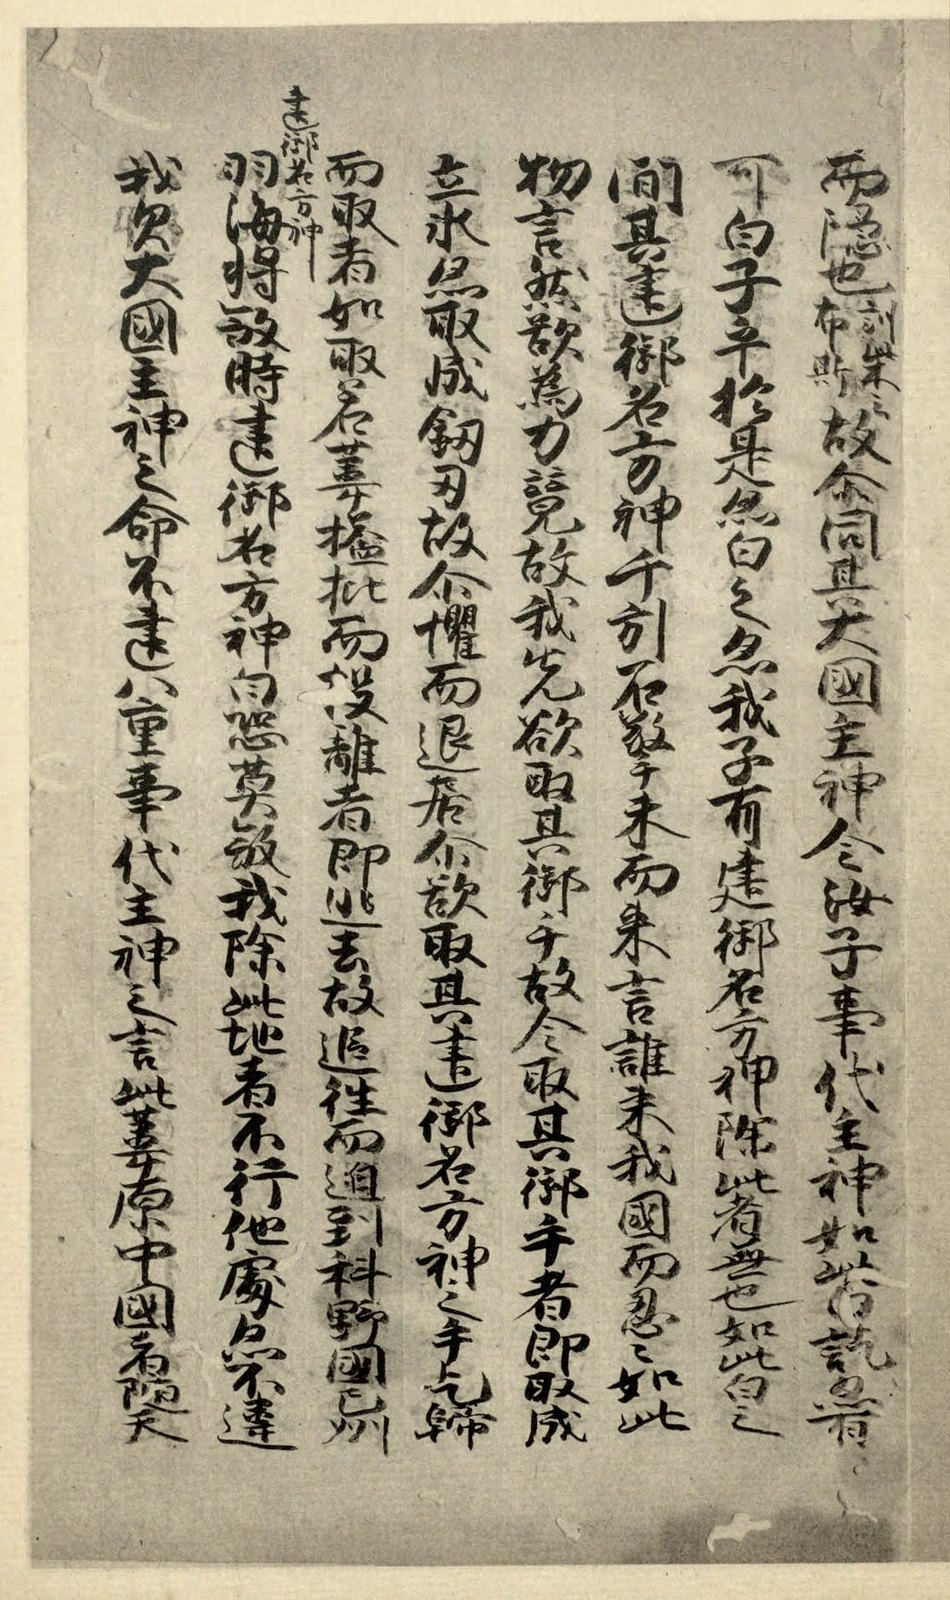 而隠也訓柴云布斯故尒問其大國主神今汝子事代主神如此白訖亦有
可白子乎於是亦白之亦我子有建御名方神除此者無也如此白之
間其建御名方神千引石擎手末而来言誰来我國而忍〻如此
物言然欲為力競故我先欲取其御手故令取其御手者即取成
立氷亦取成釼刃故尒懼而退居尒欲取其建御名方神之手乞歸
而取者如取若葦搤批而投離者即逃去故追往而迫到科野國之州
建御名方神
羽海将敚時建御名方神白恐莫敚我除此地者不行他處亦不違
我父大國主神之命不違八重事代主神之言此葦原中國者隨天